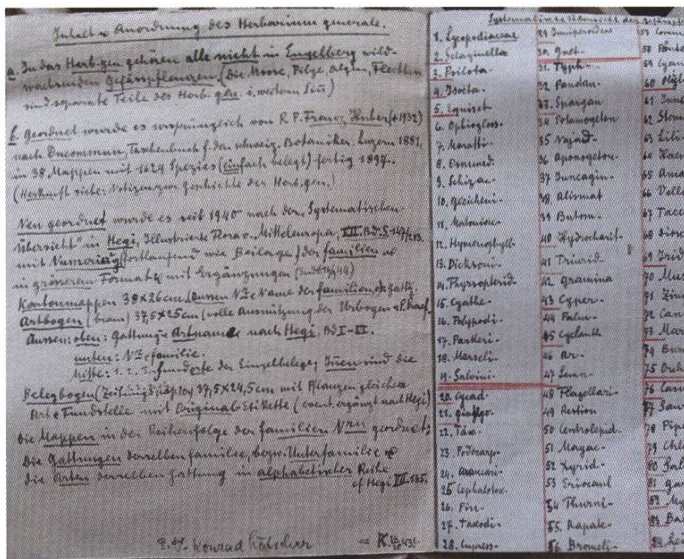 Inhalt u Anordnung des Herbarium generale.
a. In das Herb. gen gehören alle nicht in Engelberg wild-
wachsenden Gefässpflanzen (die Moose, Pilze, Algen, Flechten
sind separate Teile des Herb. gen. i. weitern Sen)
b. geordnet wurde es ursprünglich von R P. Franz Huber († 1932)
nach Ducommun, Taschenbuch f. den schweiz. Botaniker. Luzern 1881,
in 38 Mappen mit 1624 Spezies (einfach belegt) fertig 1897.
(Herkunft siehe Notizen zur Geschichte der Herb. gen.)
Neu geordnet wurde es seit 1940 nach der "Systematischen
Übersicht" in Hegi, Illustrierte Flora v. Mitteleuropa,
mit Nummerierg (fortlaufend wie Beilage) der familien u
in grösserem Formate, mit Ergänzungen
Kartonmappen 38x26cm (Aussen No & Name der familien, gattg.
Artbogen (braun) 37,5x25cm (volle Ausnützung der Urbogen
Aussen: oben: Gattungs- Artname nach Hegi, Bd I-III.
unten: No familie.
Mitte: 1. 2. 3. fundorte der Einzelbelege, Innen sind die
Belegbogen (Zeitungspapier) 37,5x24,5cm mit Pflanzen gleicher
Art & Fundstelle mit Original-Etikette (event. ergänzt nach Hegi)
Die Mappen in der Reihenfolge der familien Nrn geordnet;
Die Gattungen derselben familie, bezw. Unterfamilie &
die Arten derselben Gattung in alphabetischer Reihe
cf Hegi III. 135.
P. Konrad Lötscher
1. Lycopodiaceae
2. Selaginellac
3. Psilota-
4. Isoëta-
5. Equiset
6. Ophiogloss-
7. Maratti-
8. Osmund
9. Schizae-
10. Gleicheni-
11. Matoniac-
12. Hymenophyll-
13. Dicksoni-
14. Thyrsopterid-
15. Cyathe-
16. Polypodi-
17. Parkeri-
18. Marseli-
19. Salvini-
20. Cycad-
21. Ginkgo-
22. Tax-
23. Podocarp-
24. Araucari-
25. Cephalotax-
26. Pin-
27. Taxodi-
28. Cupress-
29 Juniperoideae
30. Gnet-
31. Typh-
32. Pandan-
33. Spargan-
34 Potamogeton
35 Najad-
36 Aponogeton
37 Juncagin-
38 Alismat
39 Butom-
40 Hydrocharit-
41 Triurid-
42 Gramina
43 Cyper-
44 Palm-
45 Cyclanth
46 Ar-
47 Lemn-
48 Flagellari-
49 Restion
50 Centrolepid-
51 Mayac-
52 Xyrid-
53 Eriocaul
54 Thurni-
55 Rapate-
56 Bromeli-